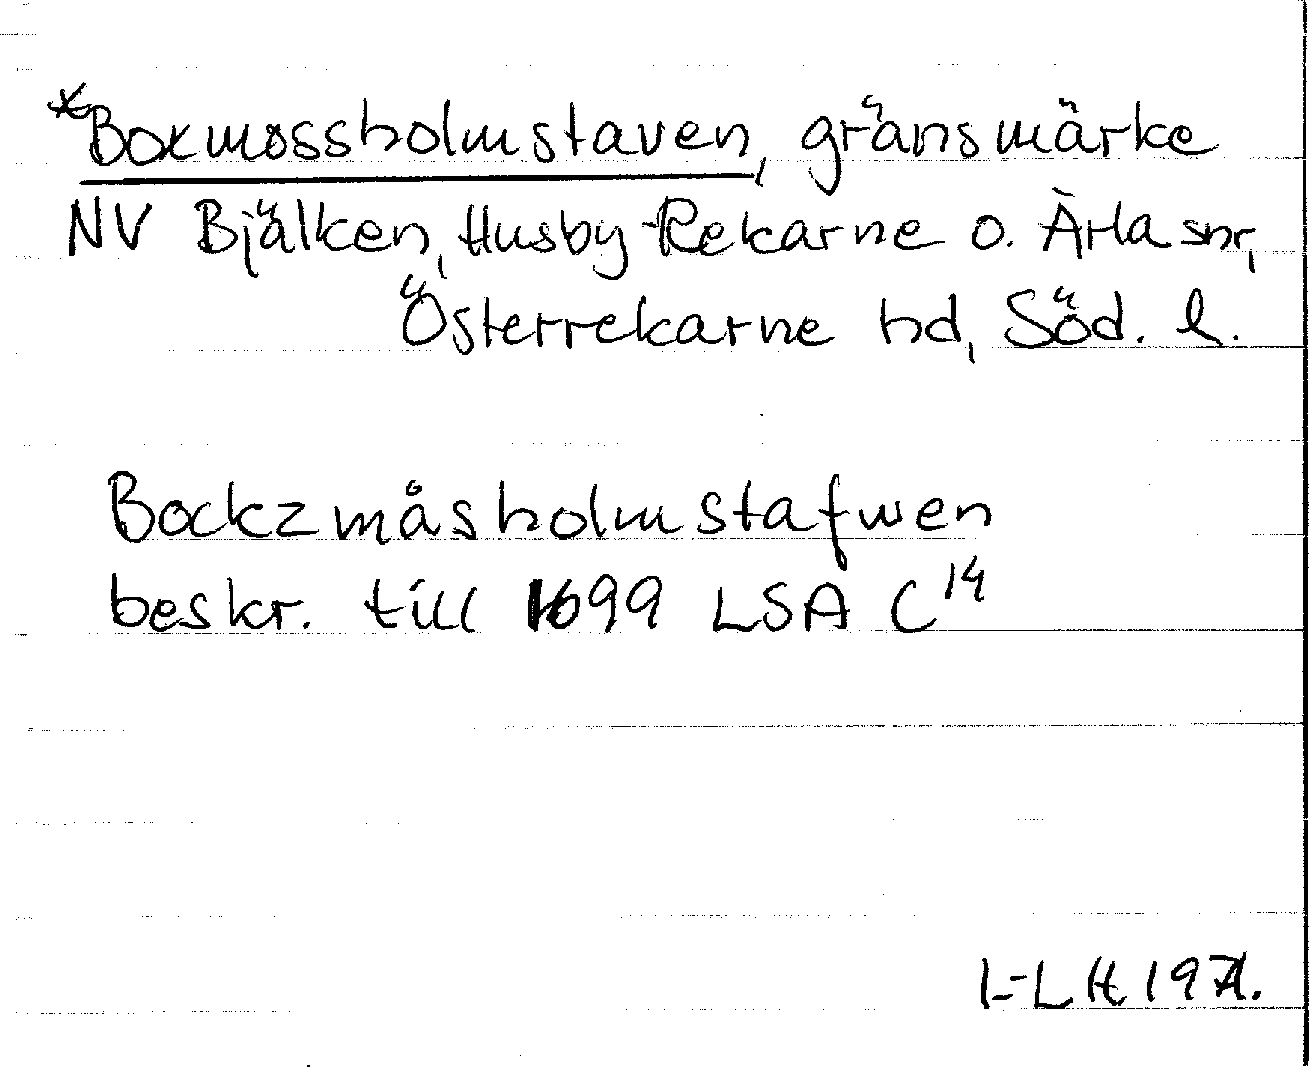 *Boxmossholmstaven, gränsmärke
NV Bjälken, Husby-Rekarne o. Ärla snr,
Österrekarne hd, Söd. l.
Bockzmåsholmstafwen
beskr. till 1699 LSA C14
L-LH